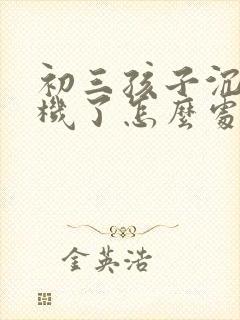 初三孩子沉
機了怎麼處
金英浩